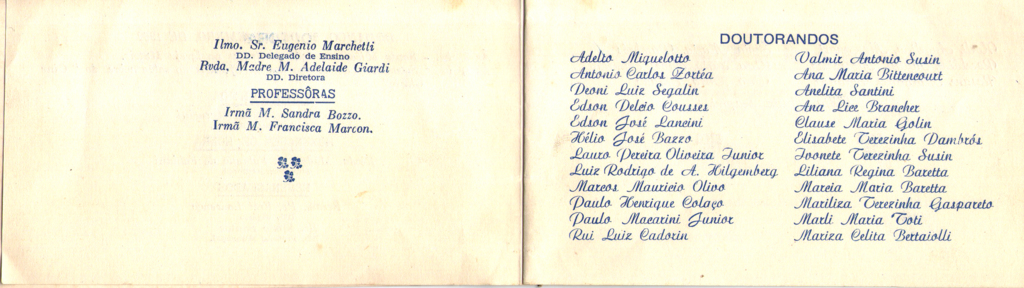 Ilmo. Sr. Eugenio Marchetti
DD. Delegado de Ensino
Rvda. Madre M. Adelaide Giardi
DD. Diretora
PROFESSÔRAS
Irmã M. Sandra Bozzo.
Irmã M. Francisca Marcon.
DOUTORANDOS
Adelto Miquelotto
Antonio Carlos Zortéa
Deoni Luiz Segalin
Edson Delcio Cousses
Edson José Lancini
Hélio José Bazzo
Lauro Pereira Oliveira Junior
Luiz Rodrigo de A. Hilgemberg
Marcos Mauricio Olivo
Paulo Henrique Colaço
Paulo Macarini Junior
Rui Luiz Cadorin
Valmir Antonio Susin
Ana Maria Bittencourt
Anelita Santini
Ana Lice Brancher
Clause Maria Golin
Elisabete Terezinha Dambrós
Ivonete Terezinha Susin
Liliana Regina Baretta
Marcia Maria Baretta
Mariliza Terezinha Gaspareto
Marli Maria Toti
Mariza Celita Bertaiolli